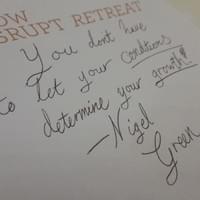 OW
SRUPT RETREAT
You don't have
to let your conditions
determine your growth!
- Nigel
Green